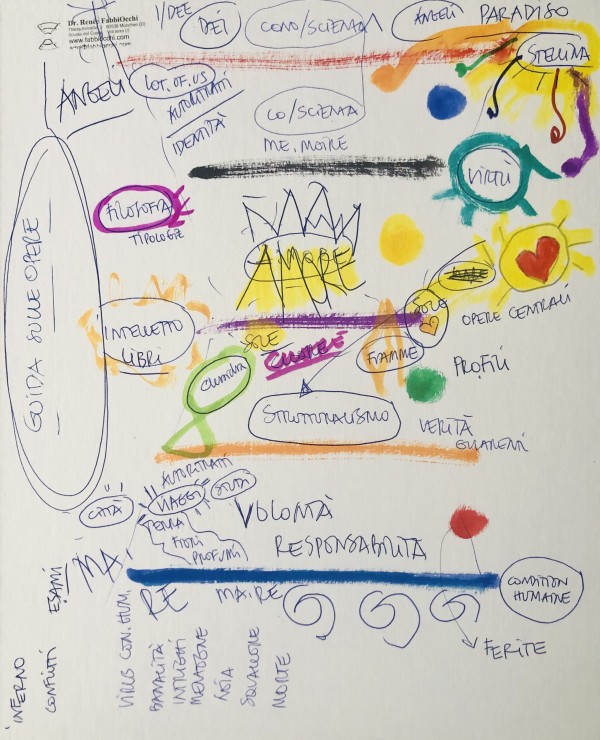 Dr. Renée FabbiOcchi
www.fabbiocchi.com
I/DEE
DEI
CONO/SCIENZA
ANGELI PARADISO
STELLINA
ANGELI
LOT.OF.US
AUTORITRATTI
IDENTITÀ
CO/SCIENZA
ME.MOIRE
VIRTÙ
FILOSOFIA
TIPOLOGIE
GUIDA SULLE OPERE
AMORE
SOLE
OPERE CENTRALI
INTELLETTO
LIBRI
SOLE
CUORE
FIAMME
PROFILI
STRUTTURALISMO
VERITÀ
AUTORITRATTI
CITTÀ
VIAGGI
STUDI
TERRA
FIORI
PROFUMI
VOLONTÀ
RESPONSABILITÀ
MA.
RE
MA.RE
CONDITION
HUMAINE
FERITE
INFERNO
CONFLITTI
ESAMI
VIRUS CON.HUM.
BANALITÀ
INTRIGHI
MENZOGNE
NOIA
SQUALLORE
MORTE